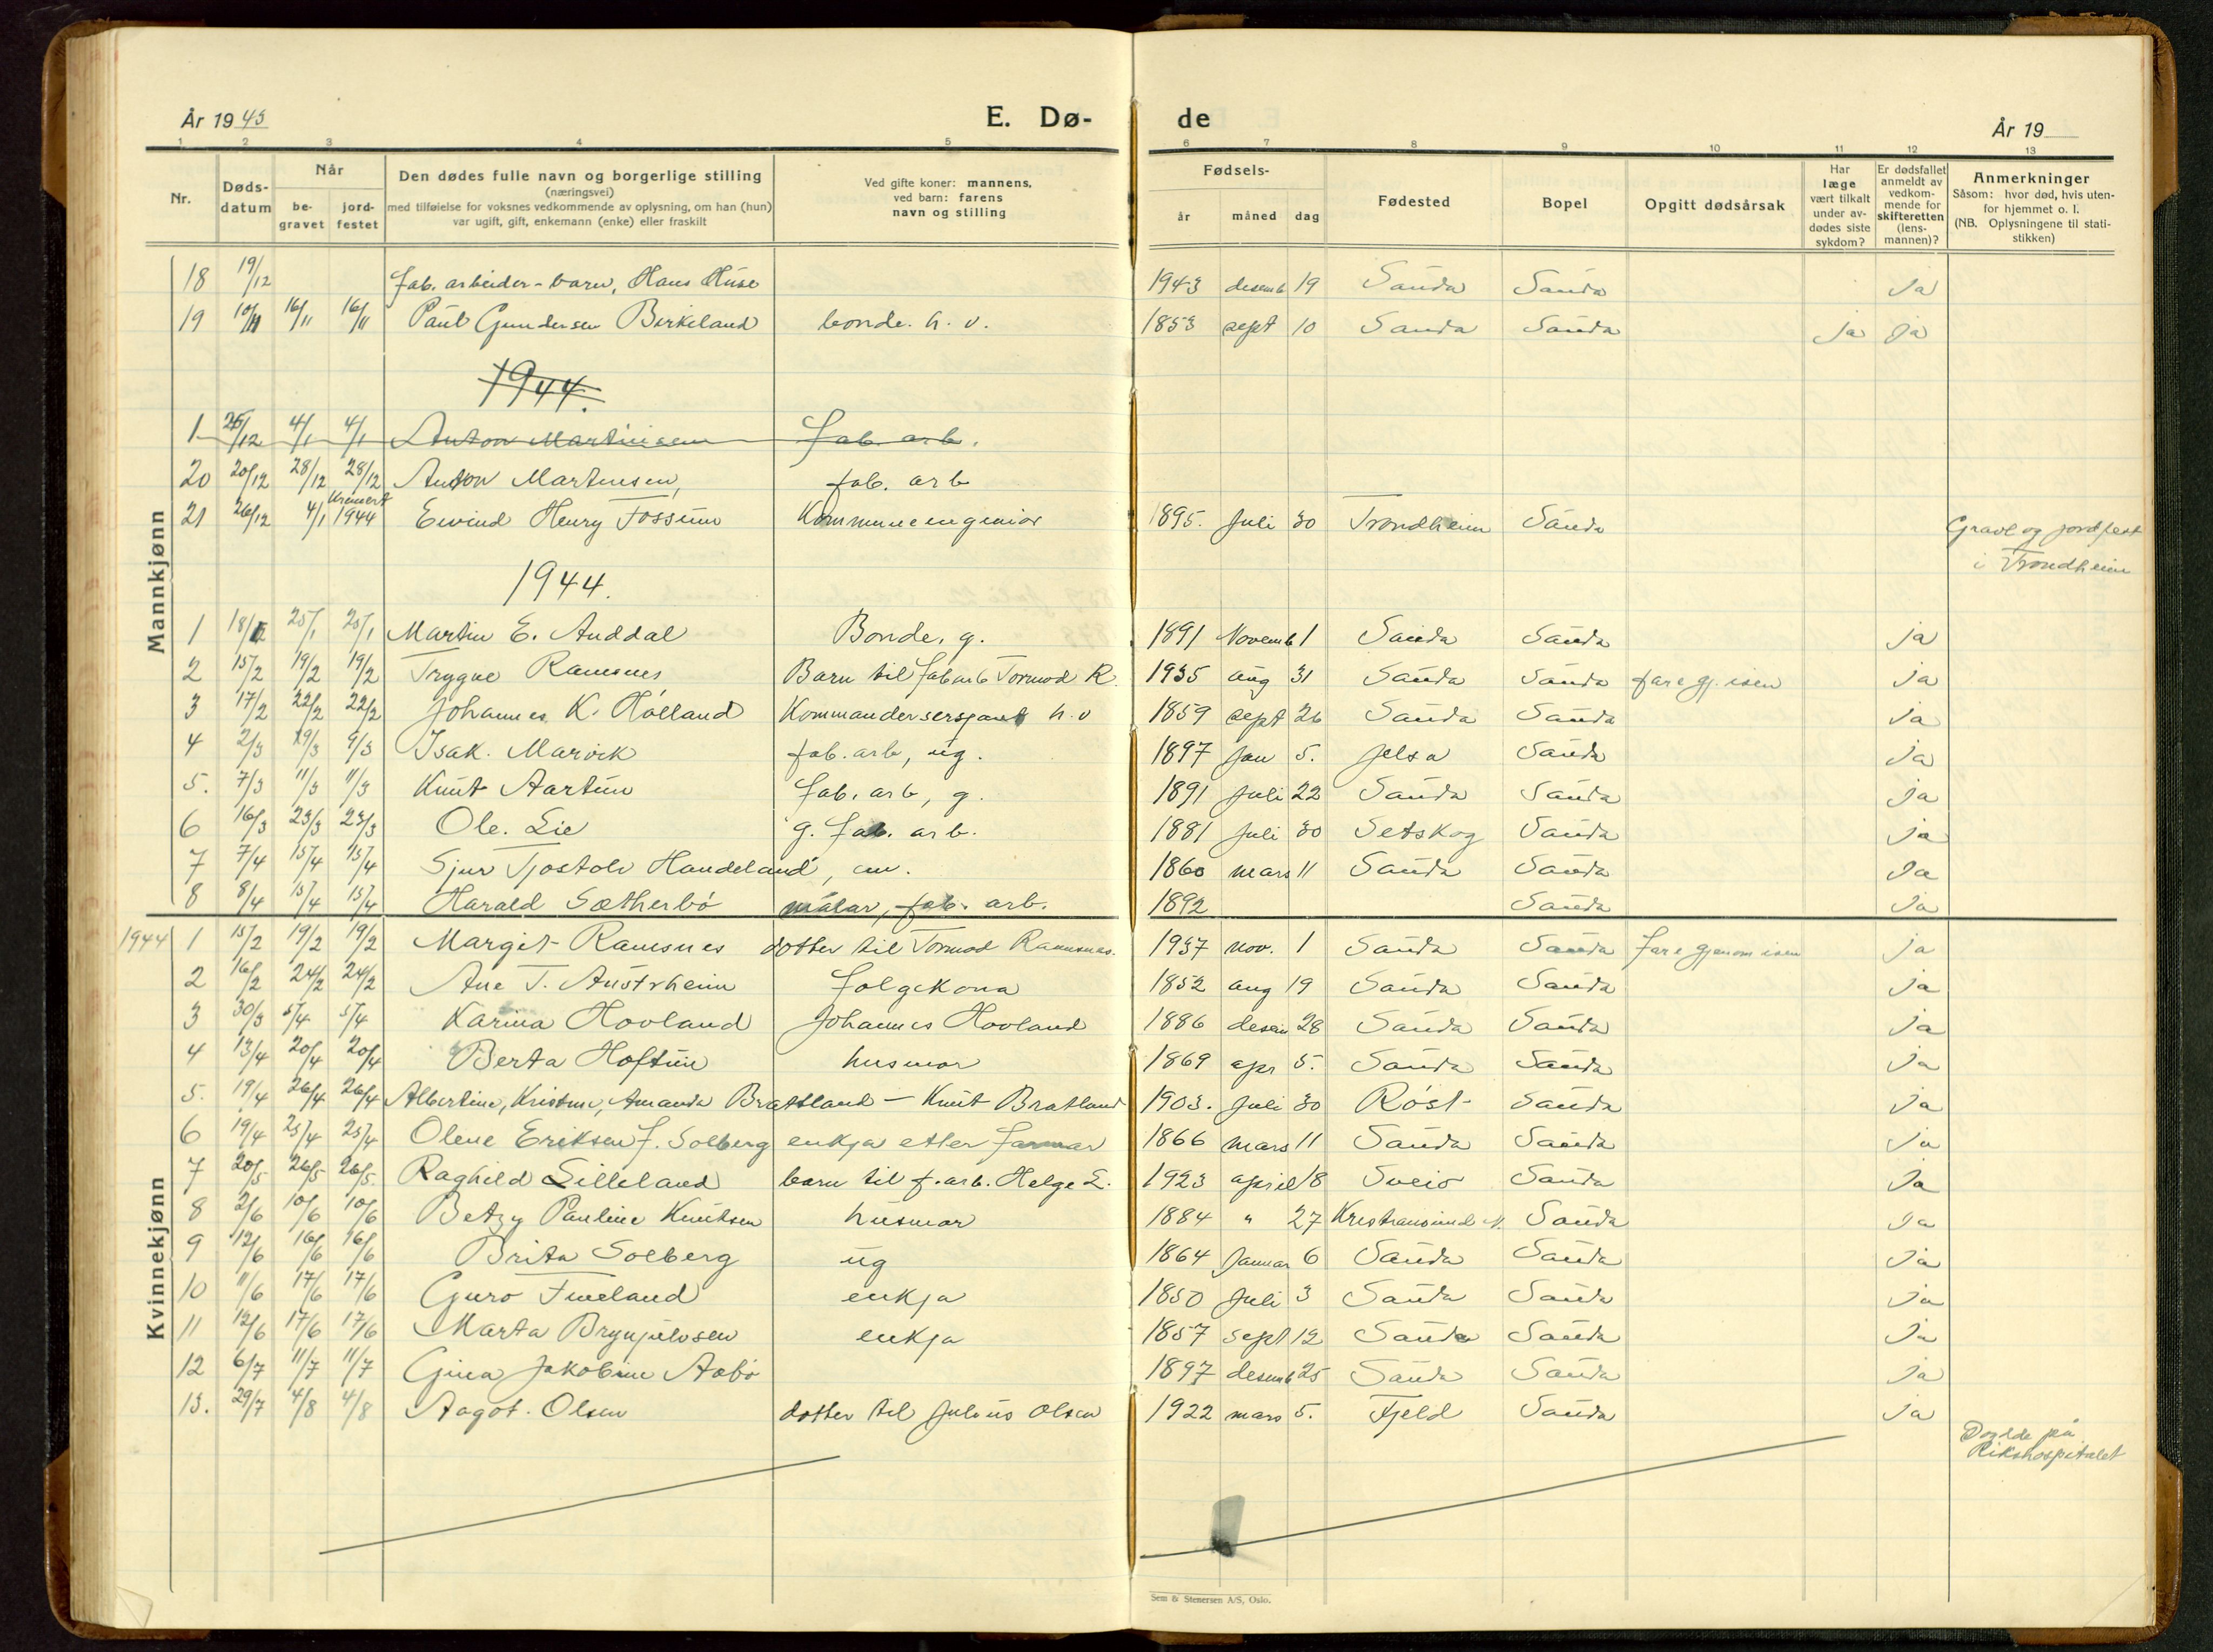 År 1943 E. Dø- de År 19
1 2 3 4 5 6 7 8 9 10 11 12 13
Nr. Døds-datum Når be-gravet jord-festet Den dødes fulle navn og borgerlige stilling (næringsvei) med tilføielse for voksnes vedkommende av oplysning, om han (hun) var ugift, gift, enkemann (enke) eller fraskilt Ved gifte koner: mannens, ved barn: farens navn og stilling Fødsels- år måned dag Fødested Bopel Opgitt dødsårsak Har læge vært tilkalt under av-dødes siste sykdom? Er dødsfallet anmeldt av vedkom-mende for skifteretten (lens-mannen)? Anmerkninger Såsom: hvor død, hvis uten-for hjemmet o. l. (NB. Oplysningene til stati-stikken)
Mannkjønn
18 19/12 fab. arbeider-barn, Hans Huse 1943 desemb 19 Sauda Sauda Ja
19 10/11 16/11 16/11 Paul Gundersen Birkeland bonde. h. v. 1853 sept 10 Sauda Sauda Ja Ja
1944.
1 25/12 4/1 4/1 Anton Martinisen fab. arb.
20 20/12 28/12 28/12 Anton Martinsen, fab. arb
21 26/12 4/1 Kremert 1944 Eivind Henry Fossum Kommuneingeniør 1895. Juli 30 Trondheim Sauda Gravl og jordfest
i Trondheim
1944.
1 18/1 25/1 25/1 Martin E. Anddal Bonde, g. 1891 Novemb 1 Sauda Sauda ja
2 15/2 19/2 19/2 Trygve Ramsnes Barn til fabarb Tormod R. 1935 aug 31 Sauda Sauda fare gj. isen Ja
3 17/2 22/2 22/2 Johannes K. Hólland Kommandersersjant h.v 1859 sept 26 Sauda Sauda Ja
4 2/3 9/3 9/3 Isak. Marvik fab. arb, ug. 1897 Jan 5. Jelsa Sauda Ja
5. 7/3 11/3 11/3 Knut Aartun fab. arb, g. 1891 Juli 22 Sauda Sauda Ja
6 16/3 23/3 23/3 Ole. Lie g. fab. arb. 1881 Juli 30 Setskog Sauda Ja
7 7/4 15/4 15/4 Sjur Tjostolv Handeland, em. 1860 mars 11 Sauda Sauda Ja
8 8/4 15/4 15/4 Harald Sætherbø målar, fab. arb. 1892 Sauda Ja
Kvinnekjønn
1944 1 15/2 19/2 19/2 Margit Ramsnes dotter til Tormod Ramsnes. 1937 nov. 1 Sauda Sauda fare gjenom isen Ja
2 16/2 24/2 24/2 Ane T. Austrheim folgekona 1852 aug 19 Sauda Sauda Ja
3 30/3 5/4 5/4 Karina Hovland Johannes Hovland 1886 desem 28 Sauda Sauda Ja
4 13/4 20/4 20/4 Berta Hoftun husmor 1869 apr 5. Sauda Sauda Ja
5. 19/4 26/4 26/4 Albertine, Kristine, Amanda Brattland — Knut Bratland 1903. Juli 30 Røst Sauda Ja
6 19/4 25/4 25/4 Olene Eriksen f. Solberg enkja etter 1866 mars 11 Sauda Sauda Ja
7 20/5 26/5 26/5. Raghild Lilleland barn til f. arb. Helge L. 1923 april 18 Sveio Sauda Ja
8 2/6 10/6 10/6 Betzy Pauline Knutsen husmor 1884 " 27 Kristiansund N. Sauda Ja
9 12/6 16/6 16/6 Brita Solberg ug 1864 Januar 6 Sauda Sauda Ja
10 11/6 17/6 17/6 Guro Fiveland enkja 1850 Juli 3 Sauda Sauda Ja
11 12/6 17/6 17/6 Marta Brynjulvsen enkja 1857 sept 12 Sauda Sauda Ja
12 6/7 11/7 11/7 Gina Jakobine Aabø 1897 desemb 25 Sauda Sauda Ja
13. 29/7 4/8 4/8 Aagot. Olsen dotter til Julius Olsen 1922 mars 5. Fjeld Sauda Ja
Døydde på
Rikshospitalet
Sem & Stenersen A/S, Oslo.